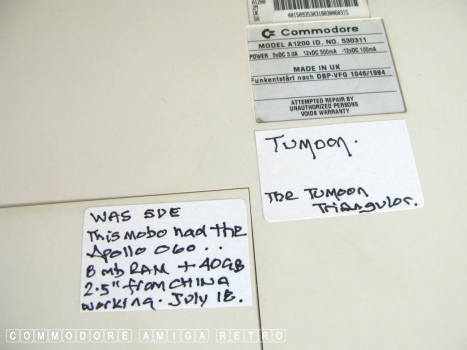 A1200
401509353031003006031S
Commodore
MODEL A1200 ID. NO. 530311
POWER 5VDC 3.0A 12VDC 500mA -12VDC 100mA
MADE IN UK
Funkentstärt nach DBP-VFG 1046/1984
ATTEMPTED REPAIR BY
UNAUTHORIZED PERSONS
VOIDS WARRANTY
TUMOON.
THE TUMOON
TRIANGULOR.
WAS SDE
This mobo had the
Apollo 060..
8 mb RAM + 40GB
2.5" from CHINA
working. July 18.
COMMODORE AMIGA RETRO